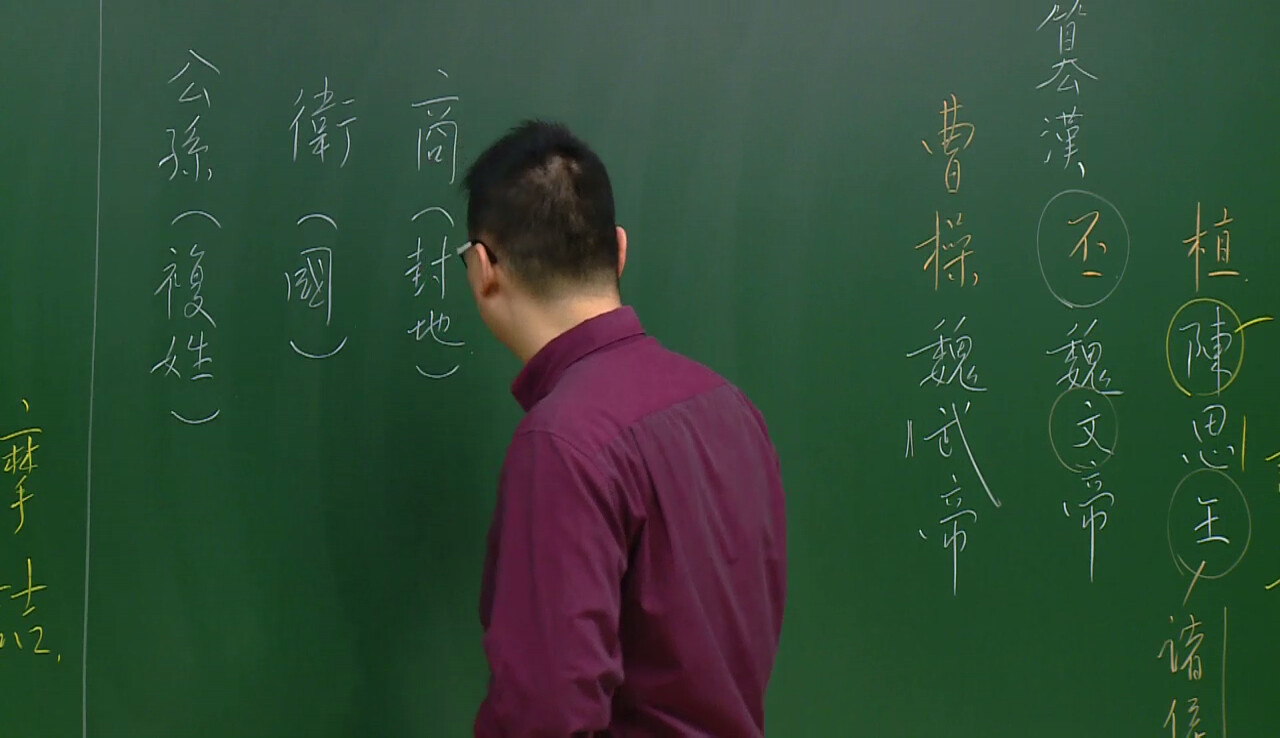 植陳思王諸侯
篡漢丕魏文帝
曹操魏武帝
商(封地)
衛(國)
公孫(複姓)
摩詰